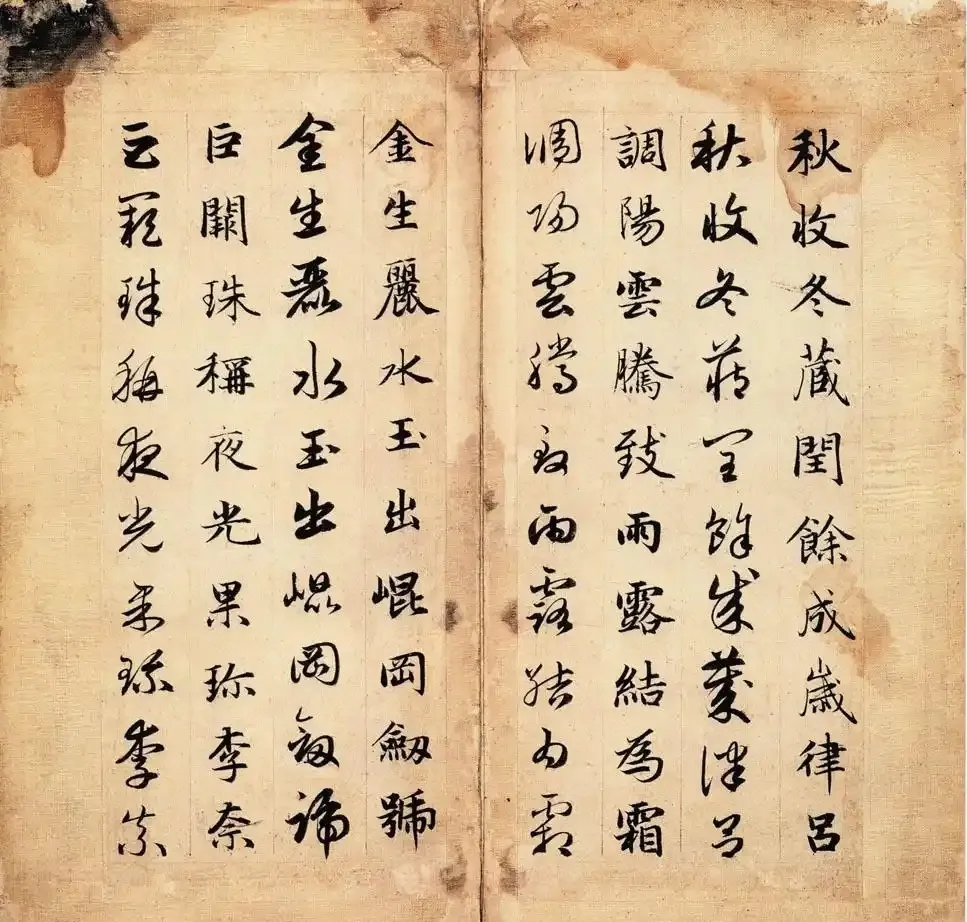 秋收冬藏閏餘成歲律呂
秋收冬藏閏餘成歲律呂
調陽雲騰致雨露結為霜
調陽雲騰致雨露結為霜
金生麗水玉出崐岡劔號
金生麗水玉出崐岡劔號
巨闕珠稱夜光果珎李柰
巨闕珠稱夜光果珎李柰